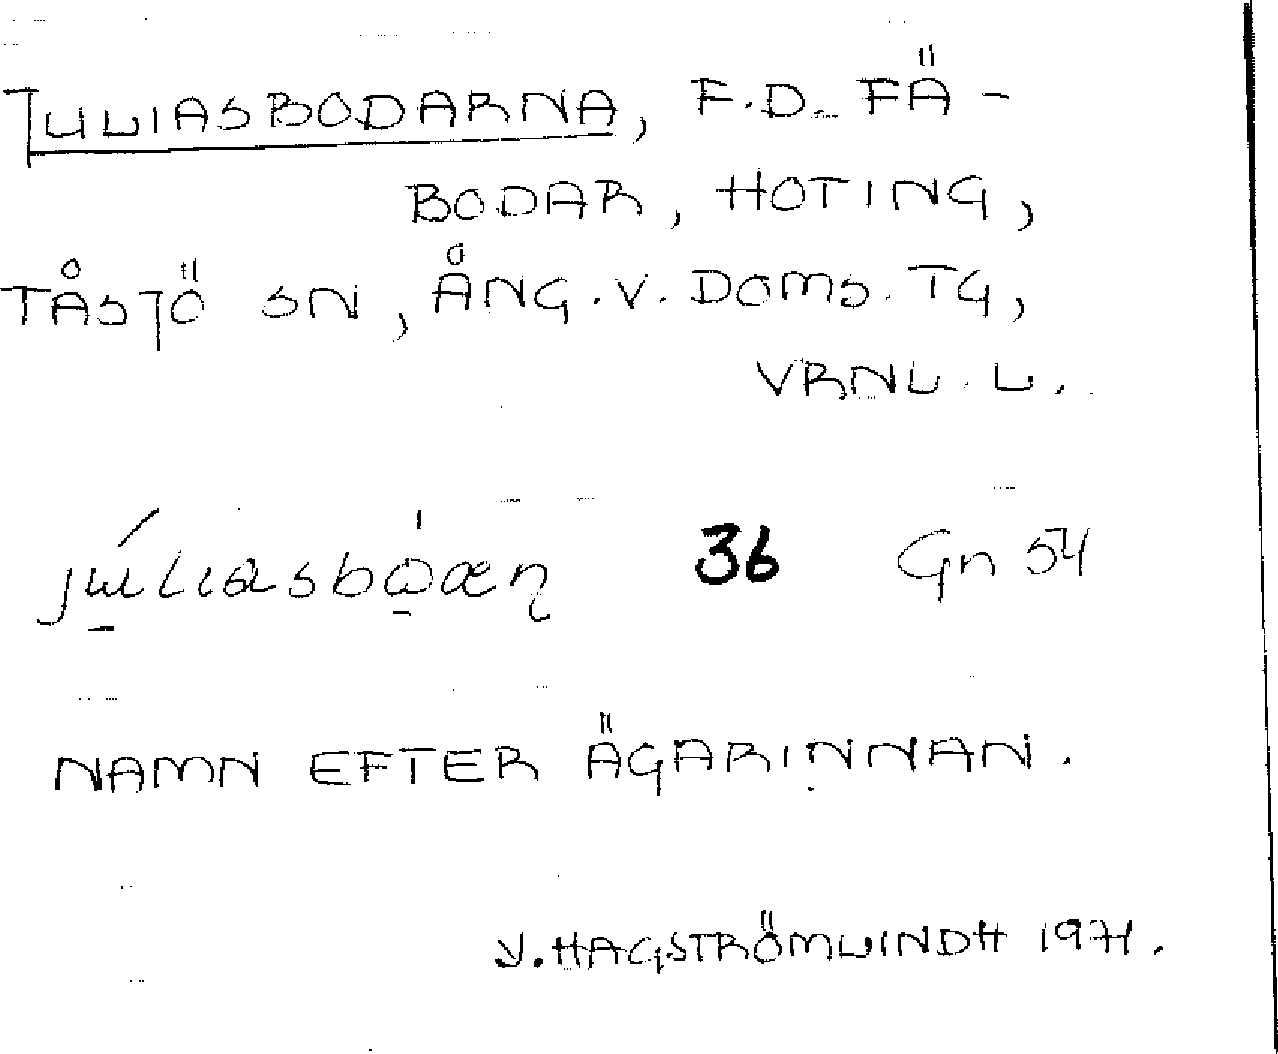 JULIASBODARNA, F.D. FÄ-
BODAR, HOTING,
TÅSJÖ SN, ÅNG.V.DOMS.TG,
VRNL.L.
36 Gn 54
NAMN EFTER ÄGARINNAN.
V.HAGSTRÖMLINDH 1971.